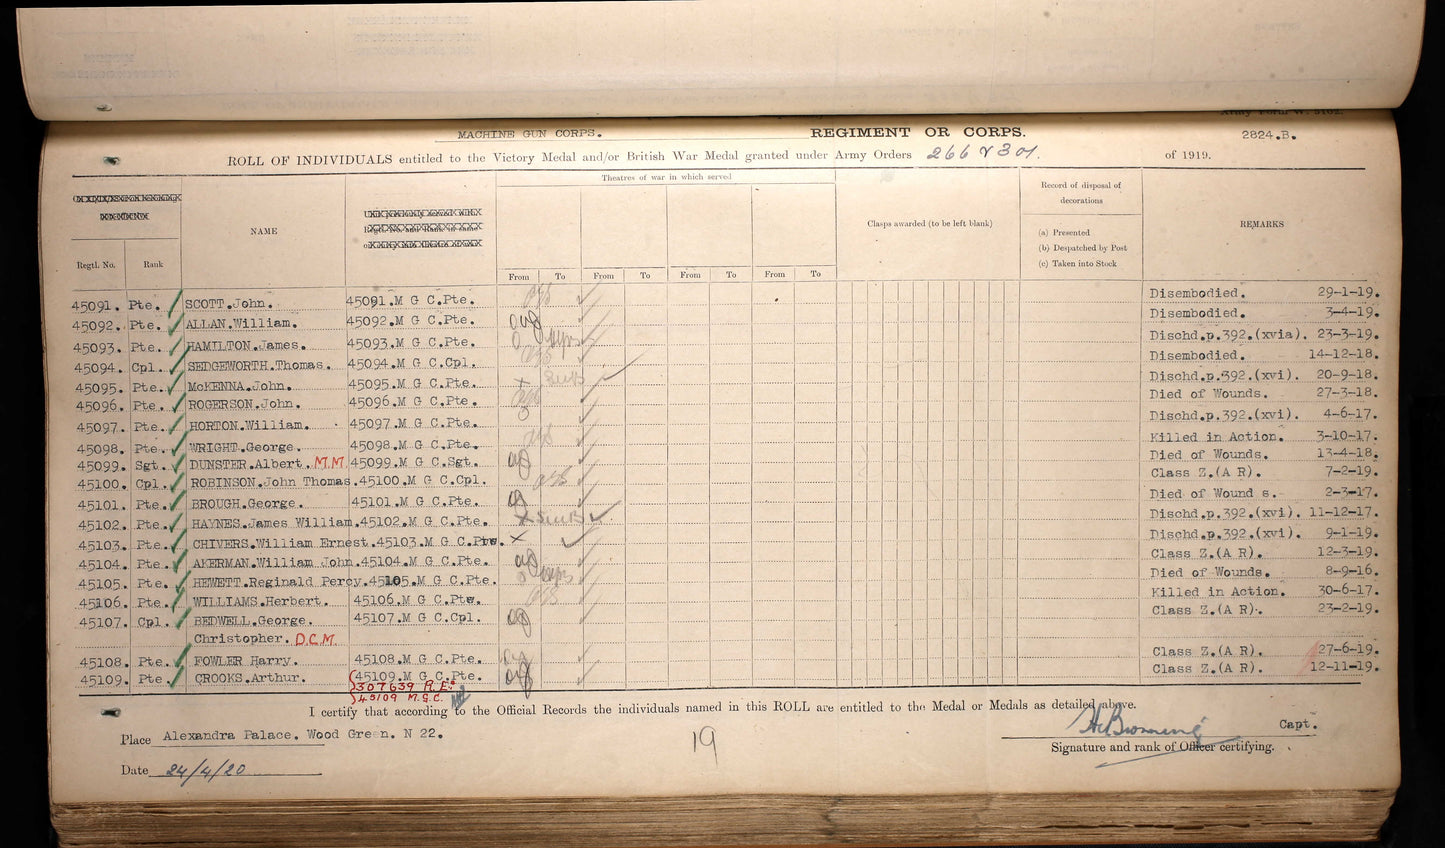 MACHINE GUN CORPS. REGIMENT OR CORPS. 2824.B.
ROLL OF INDIVIDUALS entitled to the Victory Medal and/or British War Medal granted under Army Orders 266 & 301. of 1919.
Theatres of war in which served
Record of disposal of
decorations
NAME Clasps awarded (to be left blank) REMARKS
(a) Presented
(b) Despatched by Post
(c) Taken into Stock
Regtl. No. Rank
From To From To From To From To
45091. Pte. SCOTT.John. 45091.M G C.Pte. Disembodied. 29-1-19.
45092. Pte. ALLAN.William. 45092.M G C.Pte. Disembodied. 3-4-19.
45093. Pte. HAMILTON.James. 45093.M G C.Pte. Dischd.p.392.(xvia). 23-3-19.
45094. Cpl. SEDGEWORTH.Thomas. 45094.M G C.Cpl. Disembodied. 14-12-18.
45095. Pte. McKENNA.John. 45095.M G C.Pte. Dischd.p.392.(xvi). 20-9-18.
45096. Pte. ROGERSON.John. 45096.M G C.Pte. Died of Wounds. 27-3-18.
45097. Pte. HORTON.William. 45097.M G C.Pte. Dischd.p.392.(xvi). 4-6-17.
45098. Pte. WRIGHT.George. 45098.M G C.Pte. Killed in Action. 3-10-17.
45099. Sgt. DUNSTER.Albert. M.M. 45099.M G C.Sgt. Died of Wounds. 13-4-18.
45100. Cpl. ROBINSON.John Thomas. 45100.M G C.Cpl. Class Z.(A R). 7-2-19.
45101. Pte. BROUGH.George. 45101.M G C.Pte. Died of Wound s. 2-3-17.
45102. Pte. HAYNES.James William. 45102.M G C.Pte. Dischd.p.392.(xvi). 11-12-17.
45103. Pte. CHIVERS.William Ernest. 45103.M G C.Pte. Dischd.p.392.(xvi). 9-1-19.
45104. Pte. AKERMAN.William John. 45104.M G C.Pte. Class Z.(A R). 12-3-19.
45105. Pte. HEWETT.Reginald Percy. 45105.M G C.Pte. Died of Wounds. 8-9-16.
45106. Pte. WILLIAMS.Herbert. 45106.M G C.Pte. Killed in Action. 30-6-17.
45107. Cpl. BEDWELL.George. 45107.M G C.Cpl. Class Z.(A R). 23-2-19.
Christopher. D.C.M.
45108. Pte. FOWLER Harry. 45108.M G C.Pte. Class Z.(A R). 27-6-19.
45109. Pte. CROOKS.Arthur. 45109.M G C.Pte. Class Z.(A R). 12-11-19.
307639 R.E.
45109 M.G.C.
I certify that according to the Official Records the individuals named in this ROLL are entitled to the Medal or Medals as detailed above.
Place Alexandra Palace. Wood Green. N 22. 19 Capt.
Signature and rank of Officer certifying.
Date 24/4/20